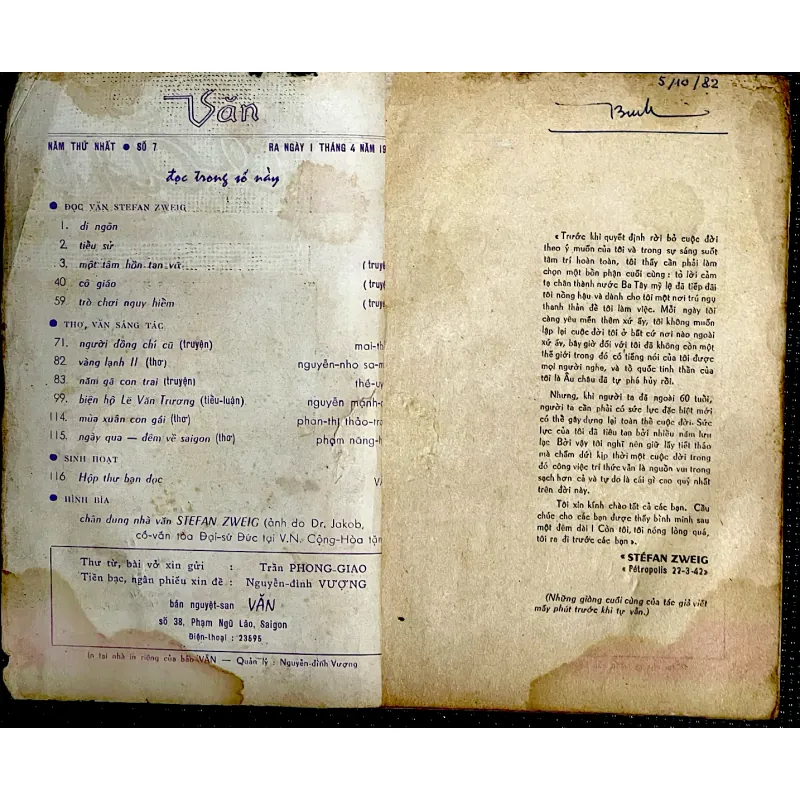 Văn
NĂM THỨ NHẤT ● SỐ 7 RA NGÀY 1 THÁNG 4 NĂM 19
đọc trong số này
● ĐỌC VĂN STEFAN ZWEIG
1. di ngôn
2. tiểu sử
3. một tâm hồn tan vỡ (truyệ
40 cô giáo (truy
59. trò chơi nguy hiểm (tru
● THƠ, VĂN SÁNG TÁC
71. người đồng chí cũ (truyện) mai-th
82. vàng lạnh II (thơ) nguyễn-nho sa-m
83. năm gã con trai (truyện) thế-uy
99. biện hộ Lê Văn Trương (tiểu-luận) nguyễn mạnh-c
114. mùa xuân con gái (thơ) phan-thị thảo-tr
115. ngày qua — đêm về saigon (thơ) phạm năng-h
● SINH HOẠT
116. Hộp thư bạn đọc V
● HÌNH BÌA
chân dung nhà văn STEFAN ZWEIG (ảnh do Dr. Jakob,
cố-vấn tòa Đại-sứ Đức tại V.N. Cộng-Hòa tặn
Thư từ, bài vở xin gửi : Trần PHONG-GIAO
Tiền bạc, ngân phiếu xin đề : Nguyễn-đình VƯỢNG
bán nguyệt-san VĂN
số 38, Phạm Ngũ Lão, Saigon
Điện-thoại : 23595
In tại nhà in riêng của báo VĂN — Quản lý : Nguyễn-đình Vượng
5/10/82
« Trước khi quyết định rời bỏ cuộc đời
theo ý muốn của tôi và trong sự sáng suốt
tâm trí hoàn toàn, tôi thấy cần phải làm
chọn một bổn phận cuối cùng : tỏ lời cảm
tạ chân thành nước Ba Tây mỹ lệ đã tiếp đãi
tôi nồng hậu và dành cho tôi một nơi trú ngụ
thanh thản để tôi làm việc. Mỗi ngày tôi
càng yêu mến thêm xứ ấy, tôi không muốn
lập lại cuộc đời tôi ở bất cứ nơi nào ngoài
xứ ấy, bây giờ đối với tôi đã không còn một
thế giới trong đó có tiếng nói của tôi được
mọi người nghe, và tổ quốc tinh thần của
tôi là Âu châu đã tự phá hủy rồi.
Nhưng, khi người ta đã ngoài 60 tuổi,
người ta cần phải có sức lực đặc biệt mới
có thể gây dựng lại toàn thể cuộc đời. Sức
lực của tôi đã tiêu tan bởi nhiều năm lưu
lạc. Bởi vậy tôi nghĩ nên giữ lấy tiết tháo
mà chấm dứt kịp thời một cuộc đời trong
đó công việc trí thức vẫn là nguồn vui trong
sạch hơn cả và tự do là cái gì cao quý nhất
trên đời này.
Tôi xin kính chào tất cả các bạn. Cầu
chúc cho các bạn được thấy bình minh sau
một đêm dài ! Còn tôi, tôi nóng lòng quá,
tôi ra đi trước các bạn ».
« STÉFAN ZWEIG
« Pétropolis 22-3-42»
(Những giòng cuối cùng của tác giả viết
mấy phút trước khi tự vẫn.)